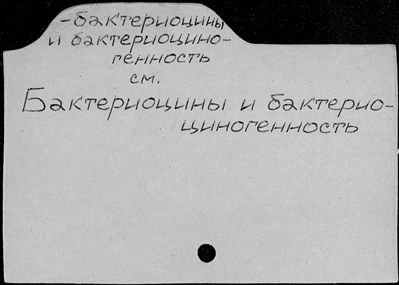 -бактериоцины
и бактериоцино-
генность
см.
Бактериоцины и бактерио-
циногенность